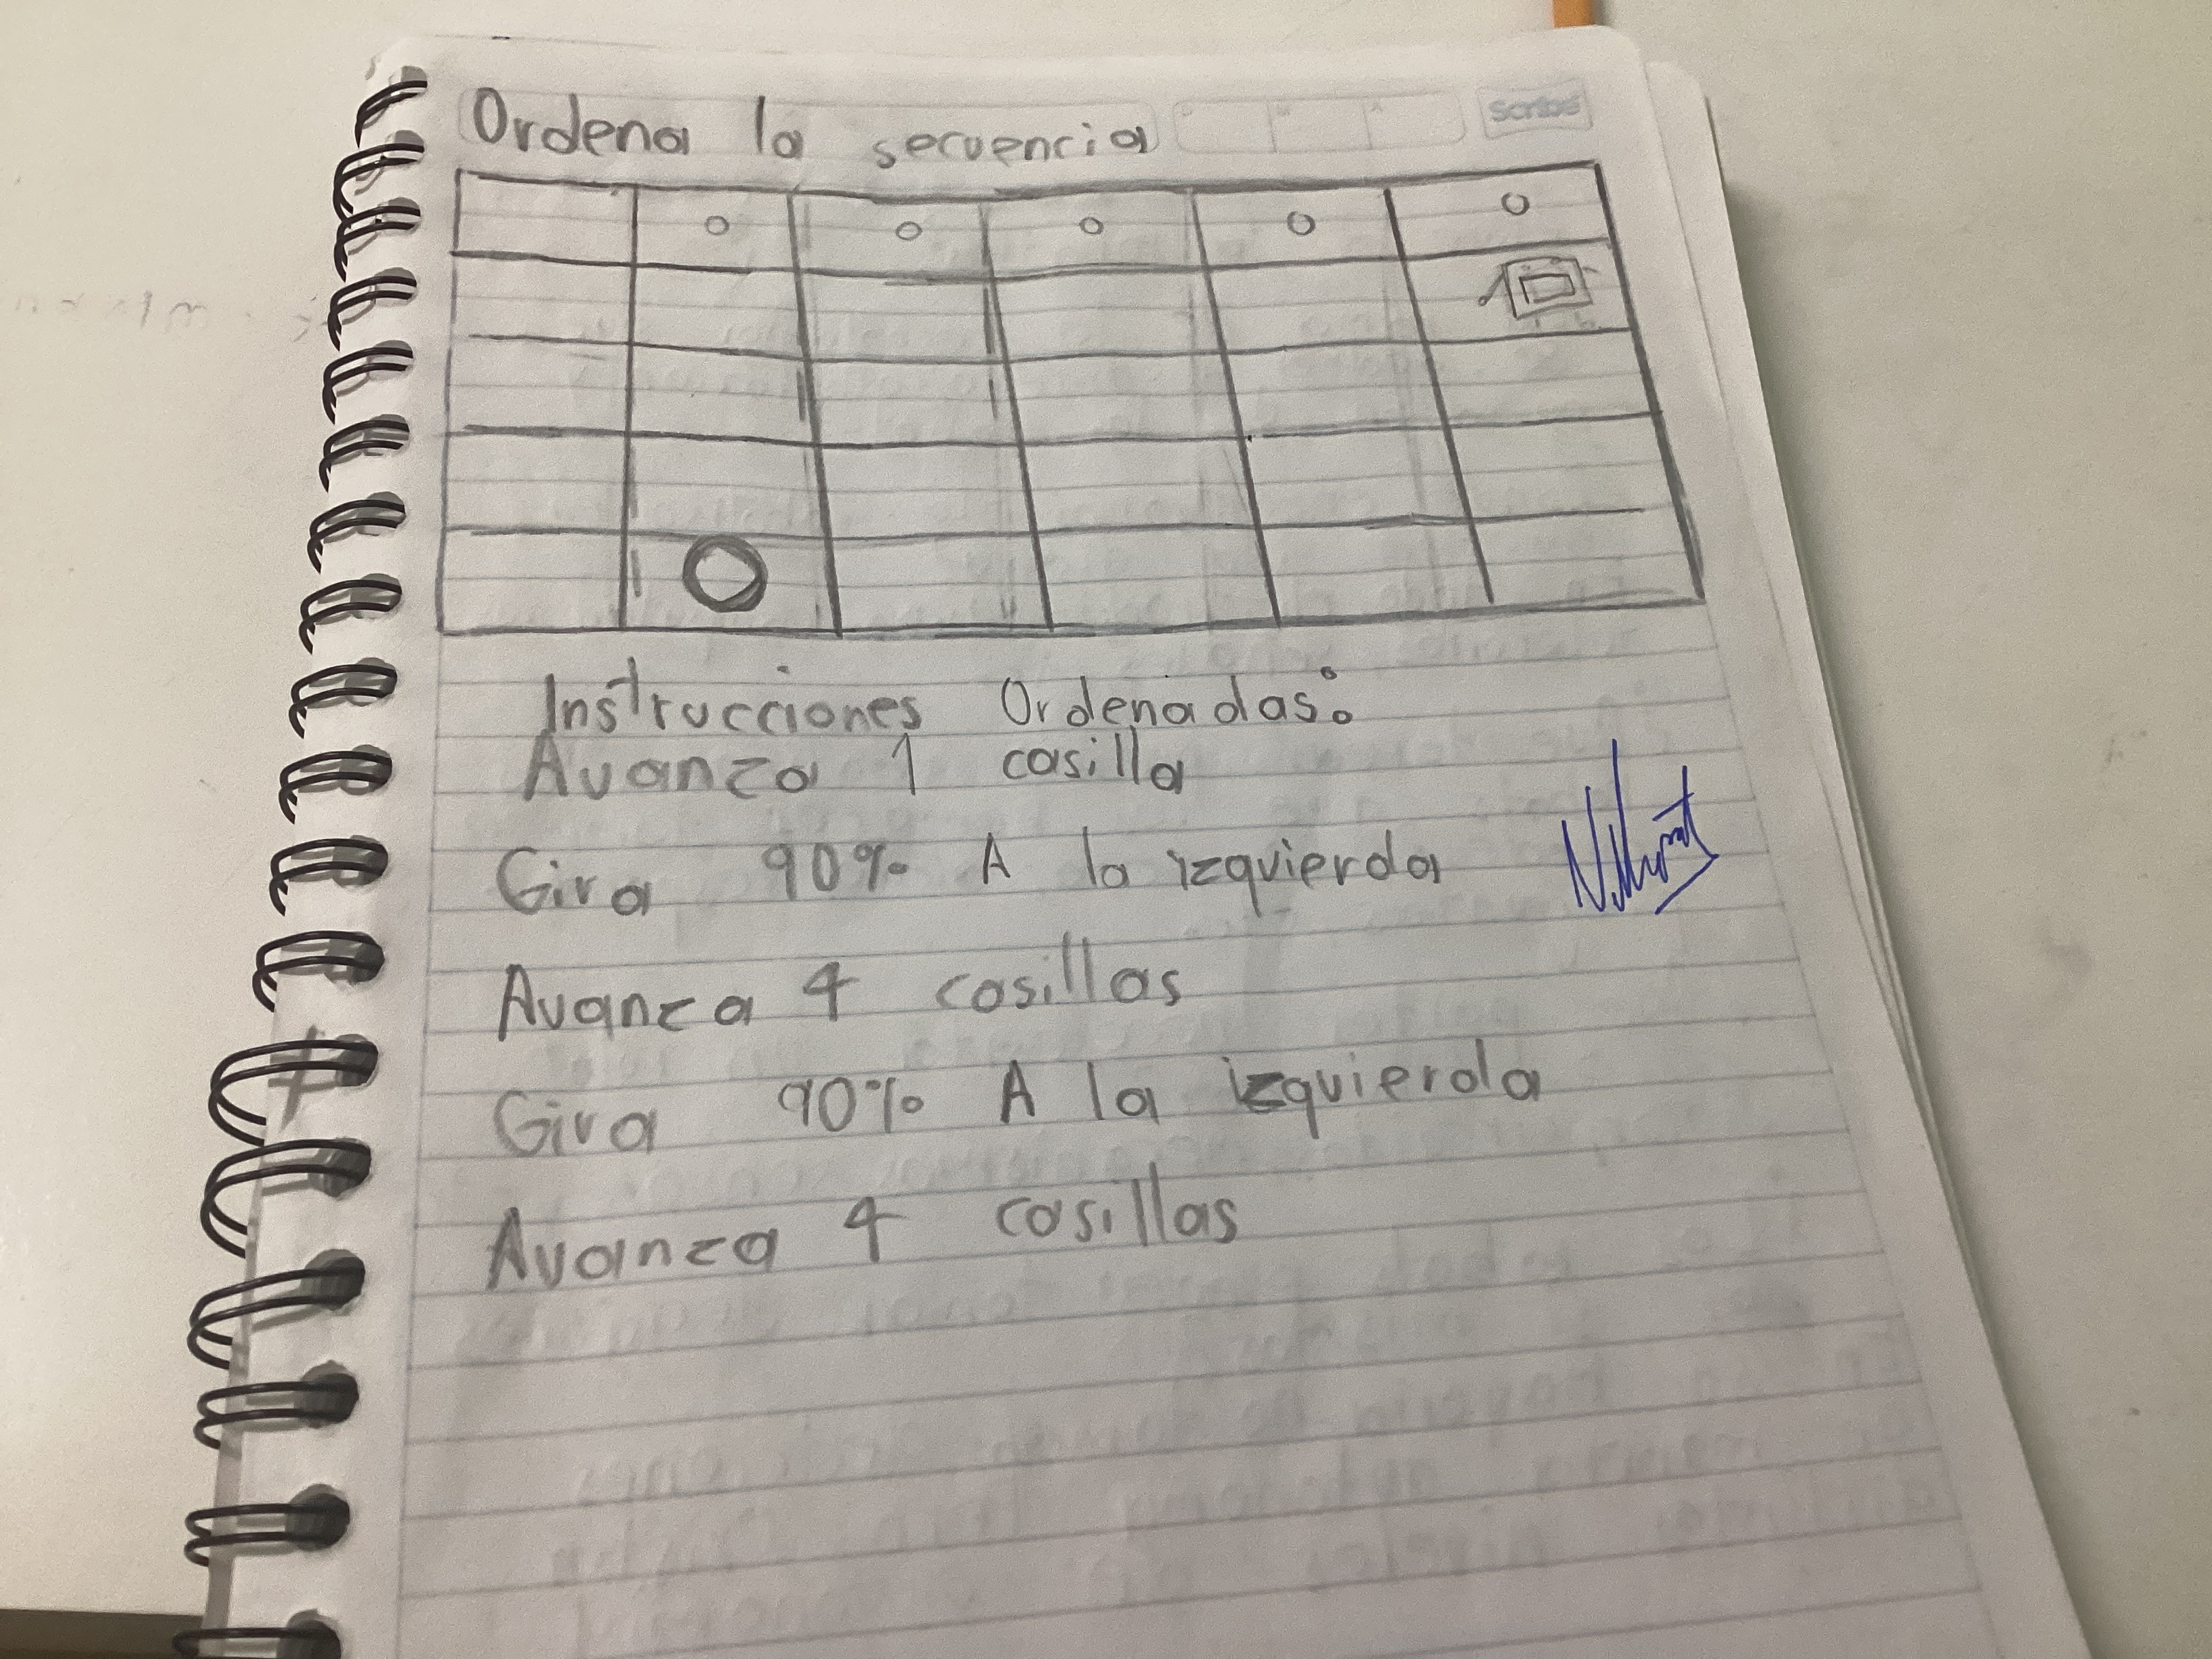 Ordena la secuencia
Scribe
Instrucciones Ordenadas:
Avanza 1 casilla
Gira 90% A la izquierda
Avanza 4 casillas
Gira 90% A la izquierda
Avanza 4 casillas